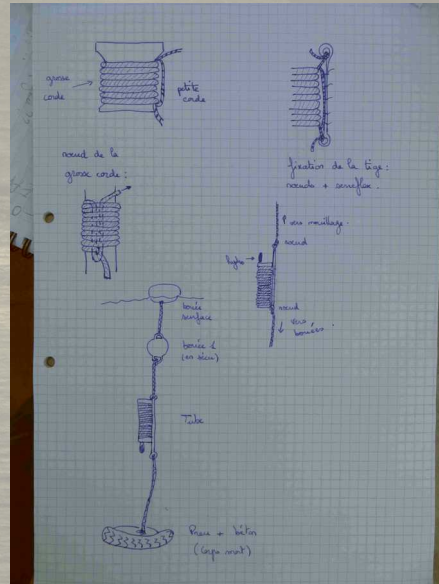 grosse
corde
petite
corde
noeud de la
grosse corde :
fixation de la tige :
noeuds + serreflex.
vers mouillage.
noeud
noeud
vers
bouée
surface
bouée 2
Tube
Pneu + béton
(corps mort)